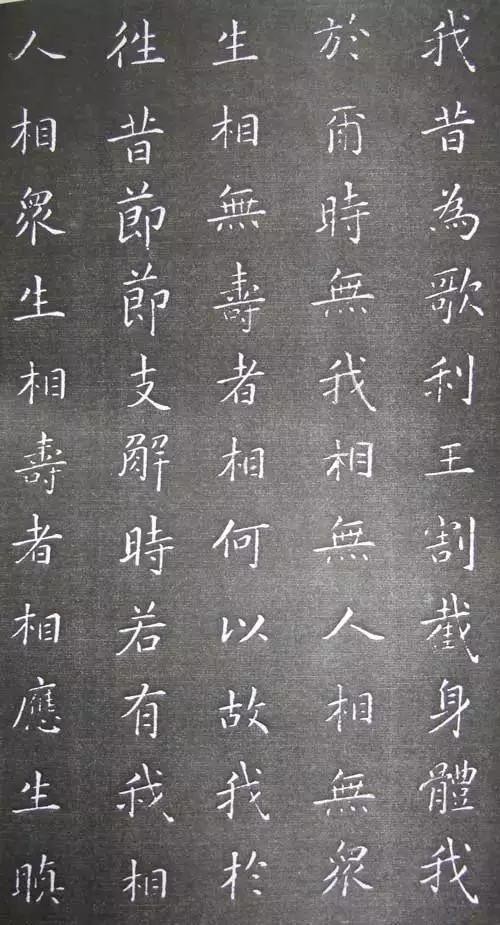 我昔為歌利王割截身體我
於爾時無我相無人相無眾
生相無壽者相何以故我於
往昔節節支解時若有我相
人相眾生相壽者相應生瞋